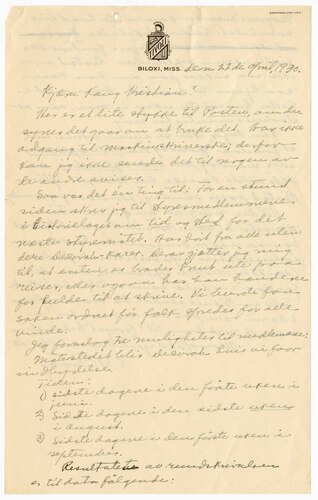 TIVOLI
BILOXI, MISS. den 22de April, 1930.
Kjære Karl Kristian!
Her er et lite stykke til Posten, om du
synes det gaar an at bruke det. Har ikke
adgang til ; derfor
kan jeg ikke sende det til nogen av
de andre aviser.
Saa var det en ting til: For en stund
siden skrev jeg til Styresmedlemmene
i Historielaget om tid og sted for det
næste styremøtet. Har hørt fra alle uten
dere Decorah-karer. Da
til, at enten er
reiser, eller ogsaa har han hænderne
for fulde til at skrive. Vi burde faa
saken ordnet før folk spredes for alle
vinde.
Jeg foreslog tre muligheter til medlemmene:
Møtestedet blir Decorah hvis vi faar
indbydelse.
Tiden:
1) sidste dagene i den første uken i
juni.
2) Sidste dagene i den sidste uken
i august.
3) Sidste dagene i den første uken i
september.
Resultatet av rundskrivelsen
er til dato følgende: